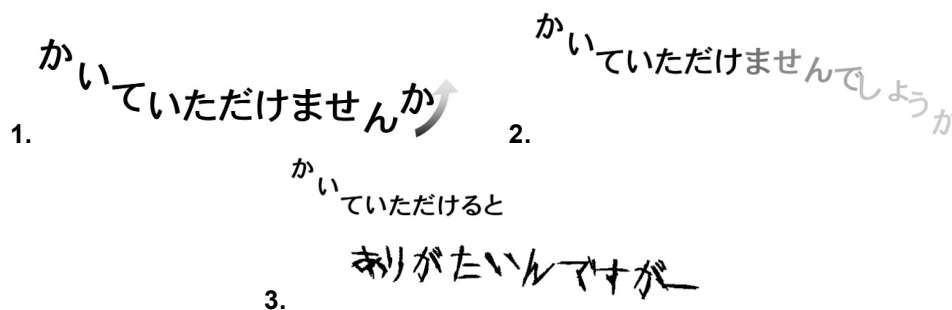 1. かいていただけませんか
2. かいていただけませんでしょうか
3. かいていただけると
ありがたいんですがー